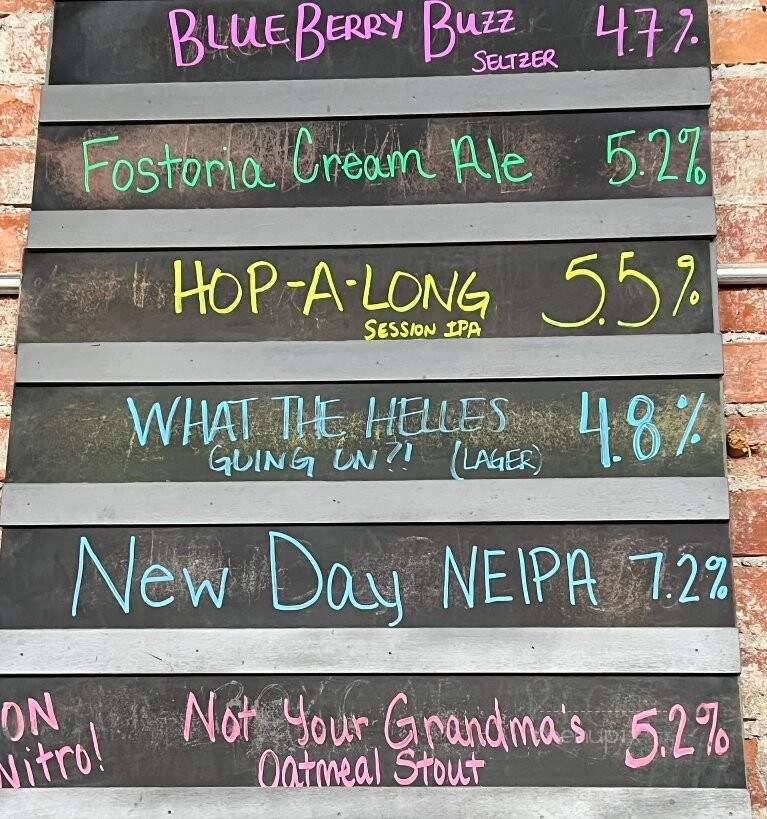 BLUEBERRY BUZZ 4.7%
SELTZER
Fostoria Cream Ale 5.2%
HOP-A-LONG 5.5%
SESSION IPA
WHAT THE HELLES 4.8%
GOING ON?! (LAGER)
New Day NEIPA 7.2%
ON Nitro!
Not Your Grandma's 5.2%
Oatmeal Stout